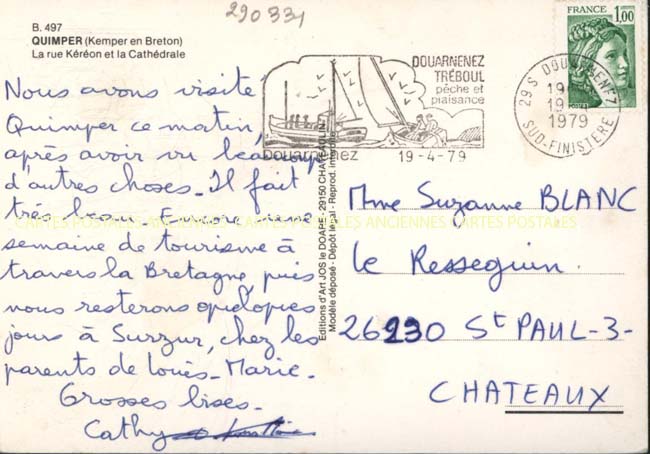 290331
B. 497
QUIMPER (Kemper en Breton)
La rue Kéréon et la Cathédrale
Nous avons visité
Quimper ce matin,
après avoir vu beaucoup
d'autres choses. Il fait
très beau. Encore une
semaine de tourisme à
travers la Bretagne, puis
nous resterons quelques
jours à Surzur, chez les
parents de Louis-Marie.
Grosses bises.
Cathy
Editions d'Art JOS le DOARE - 29150 CHATEAULIN
Modèle déposé - Dépôt légal - Reprod. interdite
DOUARNENEZ
TRÉBOUL
pêche et
plaisance
Douarnenez 19-4-79
29 S DOUARNENEZ
1979
SUD-FINISTERE
FRANCE
1,00
Mme Suzanne BLANC
Le Resseguin
26230 St PAUL-3-
CHATEAUX
CARTES POSTALES ANCIENNES CARTES POSTALES ANCIENNES CARTES POSTALES